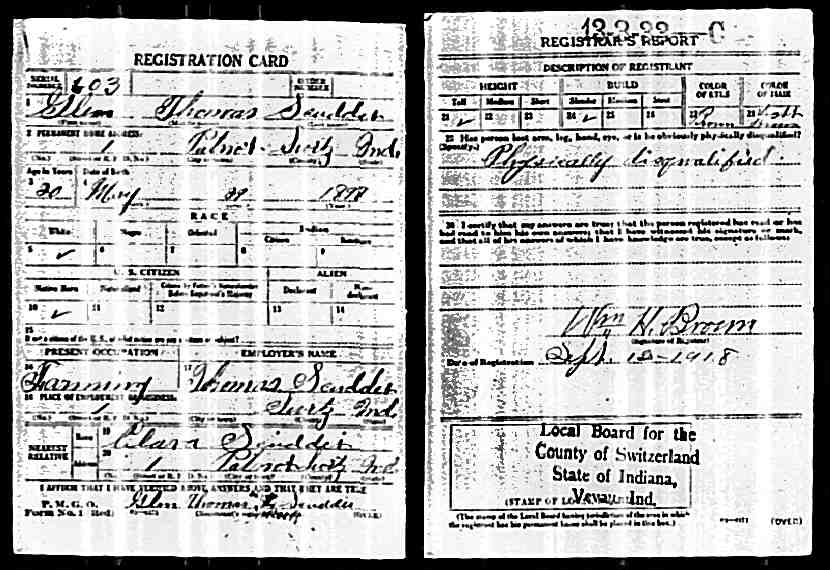 REGISTRATION CARD
SERIAL NUMBER 603
ORDER NUMBER
1 Glen Thomas Scudder
2 PERMANENT HOME ADDRESS:
1 Patriot Switz Ind.
Age in Years Date of Birth
3 20 4 May 29 1898
RACE
White Negro Oriental Indian
Citizen
5 ✓ 6 7 8 9
U. S. CITIZEN ALIEN
Native Born Naturalized Declarant
10 ✓ 11 12 13 14
15
If not a citizen of the U. S., of what nation are you a citizen or subject?
PRESENT OCCUPATION EMPLOYER'S NAME
16 Farming 17 Thomas Scudder
18 PLACE OF EMPLOYMENT OR BUSINESS:
1 Switz Ind.
NEAREST RELATIVE
Name 19 Clara Scudder
Address 20 1 Patriot Switz Ind
I AFFIRM THAT I HAVE VERIFIED ABOVE ANSWERS AND THAT THEY ARE TRUE
P. M. G. O.
Form No. 1 (Red) Glen Thomas Scudder
(OVER)
C
REGISTRAR'S REPORT
DESCRIPTION OF REGISTRANT
HEIGHT BUILD COLOR OF EYES COLOR OF HAIR
Tall Medium Short Slender Medium Stout
21 ✓ 22 23 24 ✓ 25 26 27 Brown 28
29 Has person lost arm, leg, hand, eye, or is he obviously physically disqualified?
(Specify.)
Physically disqualified.
30 I certify that my answers are true; that the person registered has read or has
had read to him his own answers; that I have witnessed his signature or mark,
and that all of his answers of which I have knowledge are true, except as follows:
Wm H. Brown
(Signature of Registrar)
Date of Registration Sept. 12-1918
Local Board for the
County of Switzerland
State of Indiana,
Vevay, Ind.
(STAMP OF LOCAL BOARD)
(The stamp of the Local Board having jurisdiction of the area in which
the registrant has his permanent home shall be placed in this box.)
(OVER)